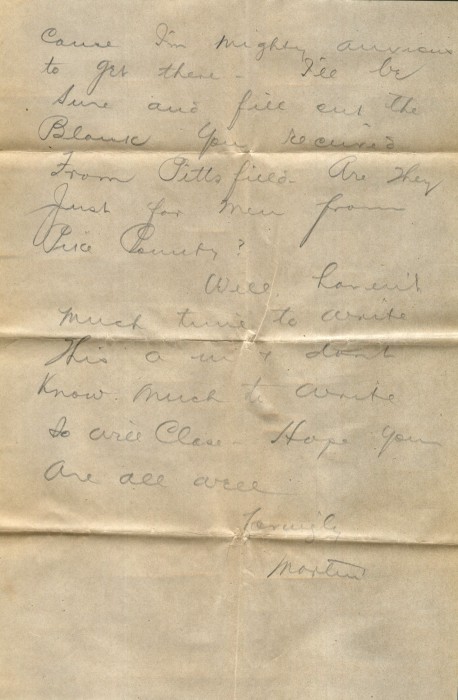 Cause I'm mighty anxious
to get there - I'll be
Sure and fill out the
Blank you received
From Pittsfield. Are They
Just for Men from
Pike County?
Well haven't
much time to write
This a m & don't
Know much to write
So will Close - Hope you
Are all well
Lovingly
Martin